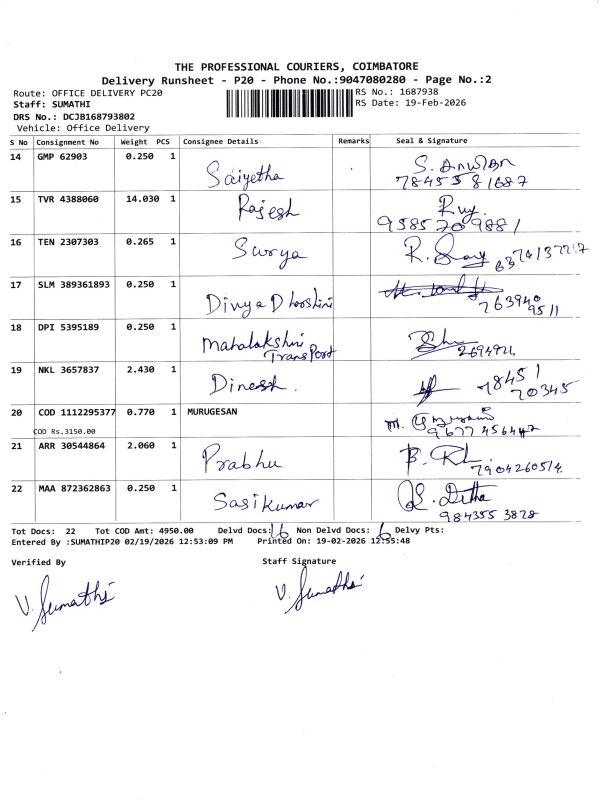 THE PROFESSIONAL COURIERS, COIMBATORE
Delivery Runsheet - P20 - Phone No.:9047080280 - Page No.:2
Route: OFFICE DELIVERY PC20 RS No.: 1687938
Staff: SUMATHI RS Date: 19-Feb-2026
DRS No.: DCJB168793802
Vehicle: Office Delivery
S No Consignment No Weight PCS Consignee Details Remarks Seal & Signature
14 GMP 62903 0.250 1 Saiyetha
7845581687
15 TVR 4388060 14.030 1 Rajesh
9585709881
16 TEN 2307303 0.265 1 Surya
17 SLM 389361893 0.250 1 Divya Dhooshini
763940
9511
18 DPI 5395189 0.250 1 Mahalakshmi
Transport
2694924
19 NKL 3657837 2.430 1 Dinesh. 78451
70345
20 COD 1112295377 0.770 1 MURUGESAN
COD Rs.3150.00
21 ARR 30544864 2.060 1 Prabhu
7904260514
22 MAA 872362863 0.250 1 Sasikumar
984355 3828
Tot Docs: 22 Tot COD Amt: 4950.00 Delvd Docs: 16 Non Delvd Docs: 6 Delvy Pts:
Entered By :SUMATHIP20 02/19/2026 12:53:09 PM Printed On: 19-02-2026 12:55:48
Verified By Staff Signature
V. Sumathi V. Sumathi